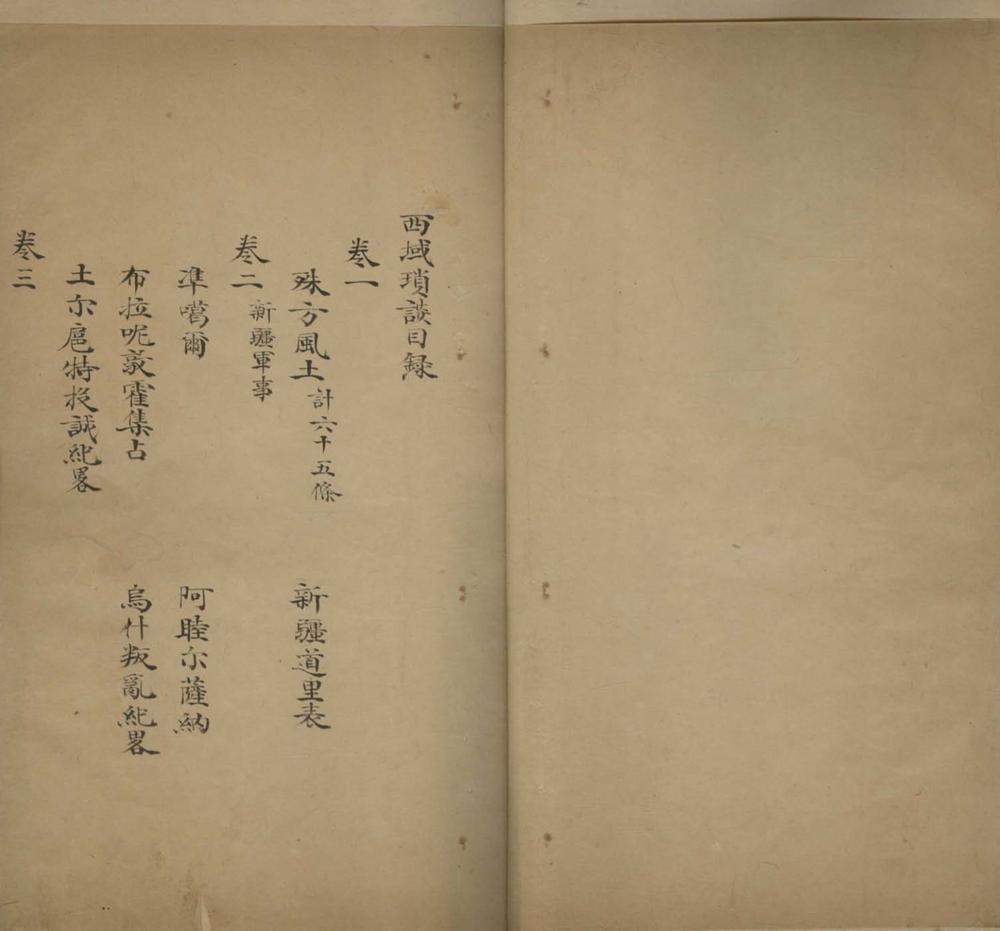 西域瑣談目録
卷一
殊方風土 計六十五條 新疆道里表
卷二 新疆軍事
凖噶爾 阿睦尔薩納
布拉呢敦霍集占 烏什叛亂紀畧
土尔扈特投誠紀畧
卷三